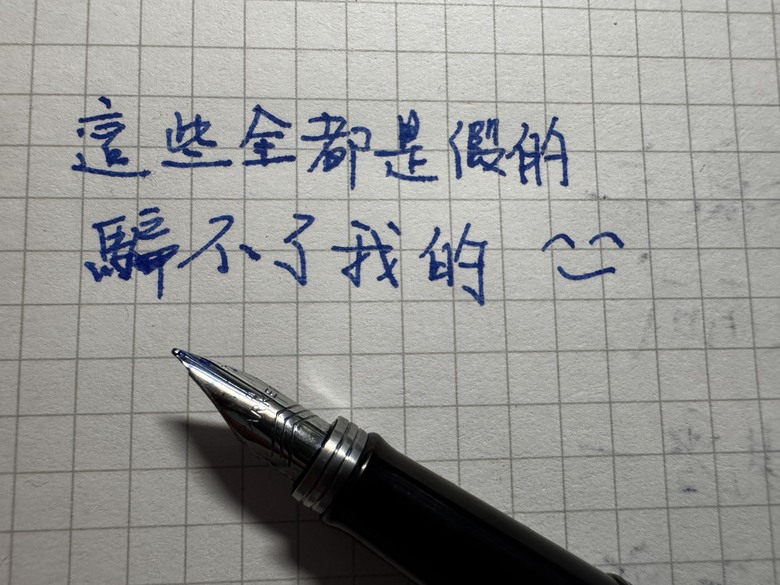 這些全都是假的
騙不了我的